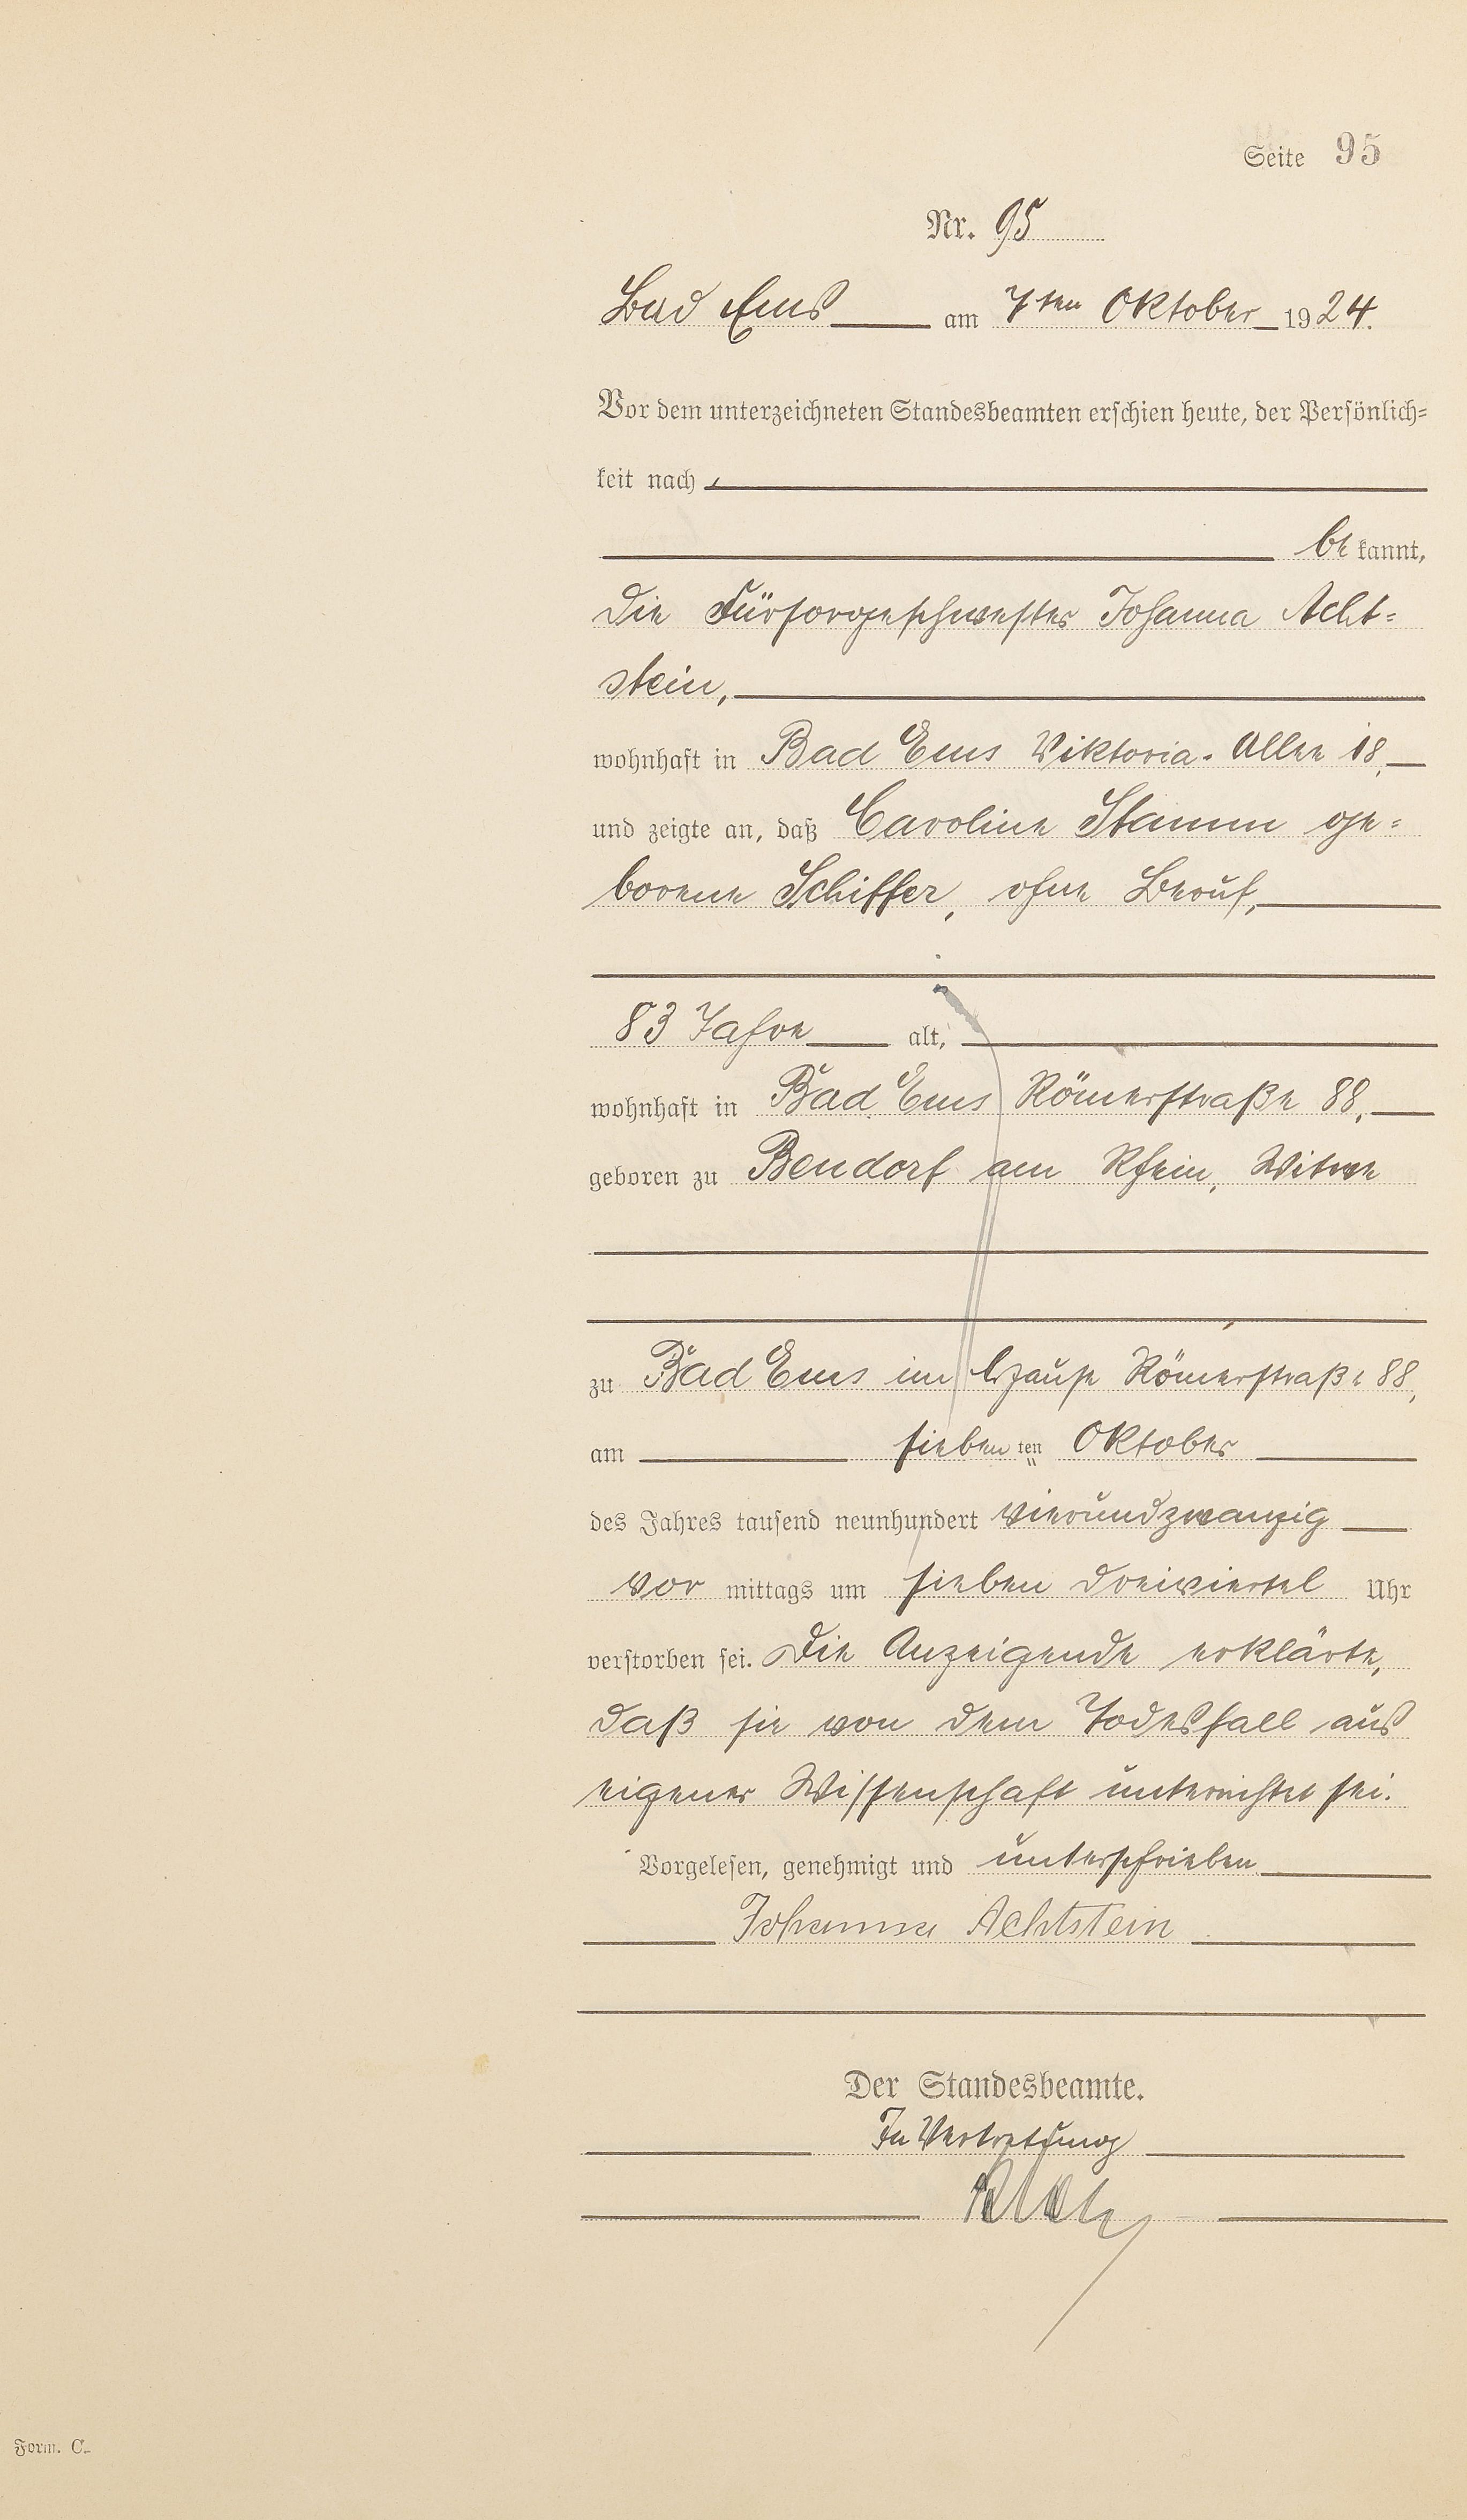 Seite 95
Nr. 95
Bad Ems am 7ten Oktober 1924.
Vor dem unterzeichneten Standesbeamten erschien heute, der Persönlich=
keit nach
be kannt,
die Fürsorgeschwester Johanna Acht=
stein,
wohnhaft in Bad Ems Viktoria-Allee 18,
und zeigte an, daß Caroline Stamm ge=
borene Schiffer, ohne Beruf,
83 Jahre alt,
wohnhaft in Bad Ems Römerstraße 88,
geboren zu Bendorf am Rhein, Witwe
zu Bad Ems im Hause Römerstraße 88,
am sieben ten Oktober
des Jahres tausend neunhundert vierundzwanzig
vor mittags um sieben dreiviertel Uhr
verstorben sei. Die Anzeigende erklärte,
daß sie von dem Todesfall aus
eigener Wissenschaft unterrichtet sei.
Vorgelesen, genehmigt und unterschrieben
Johanna Achtstein
Der Standesbeamte.
In Vertretung
Form. C.